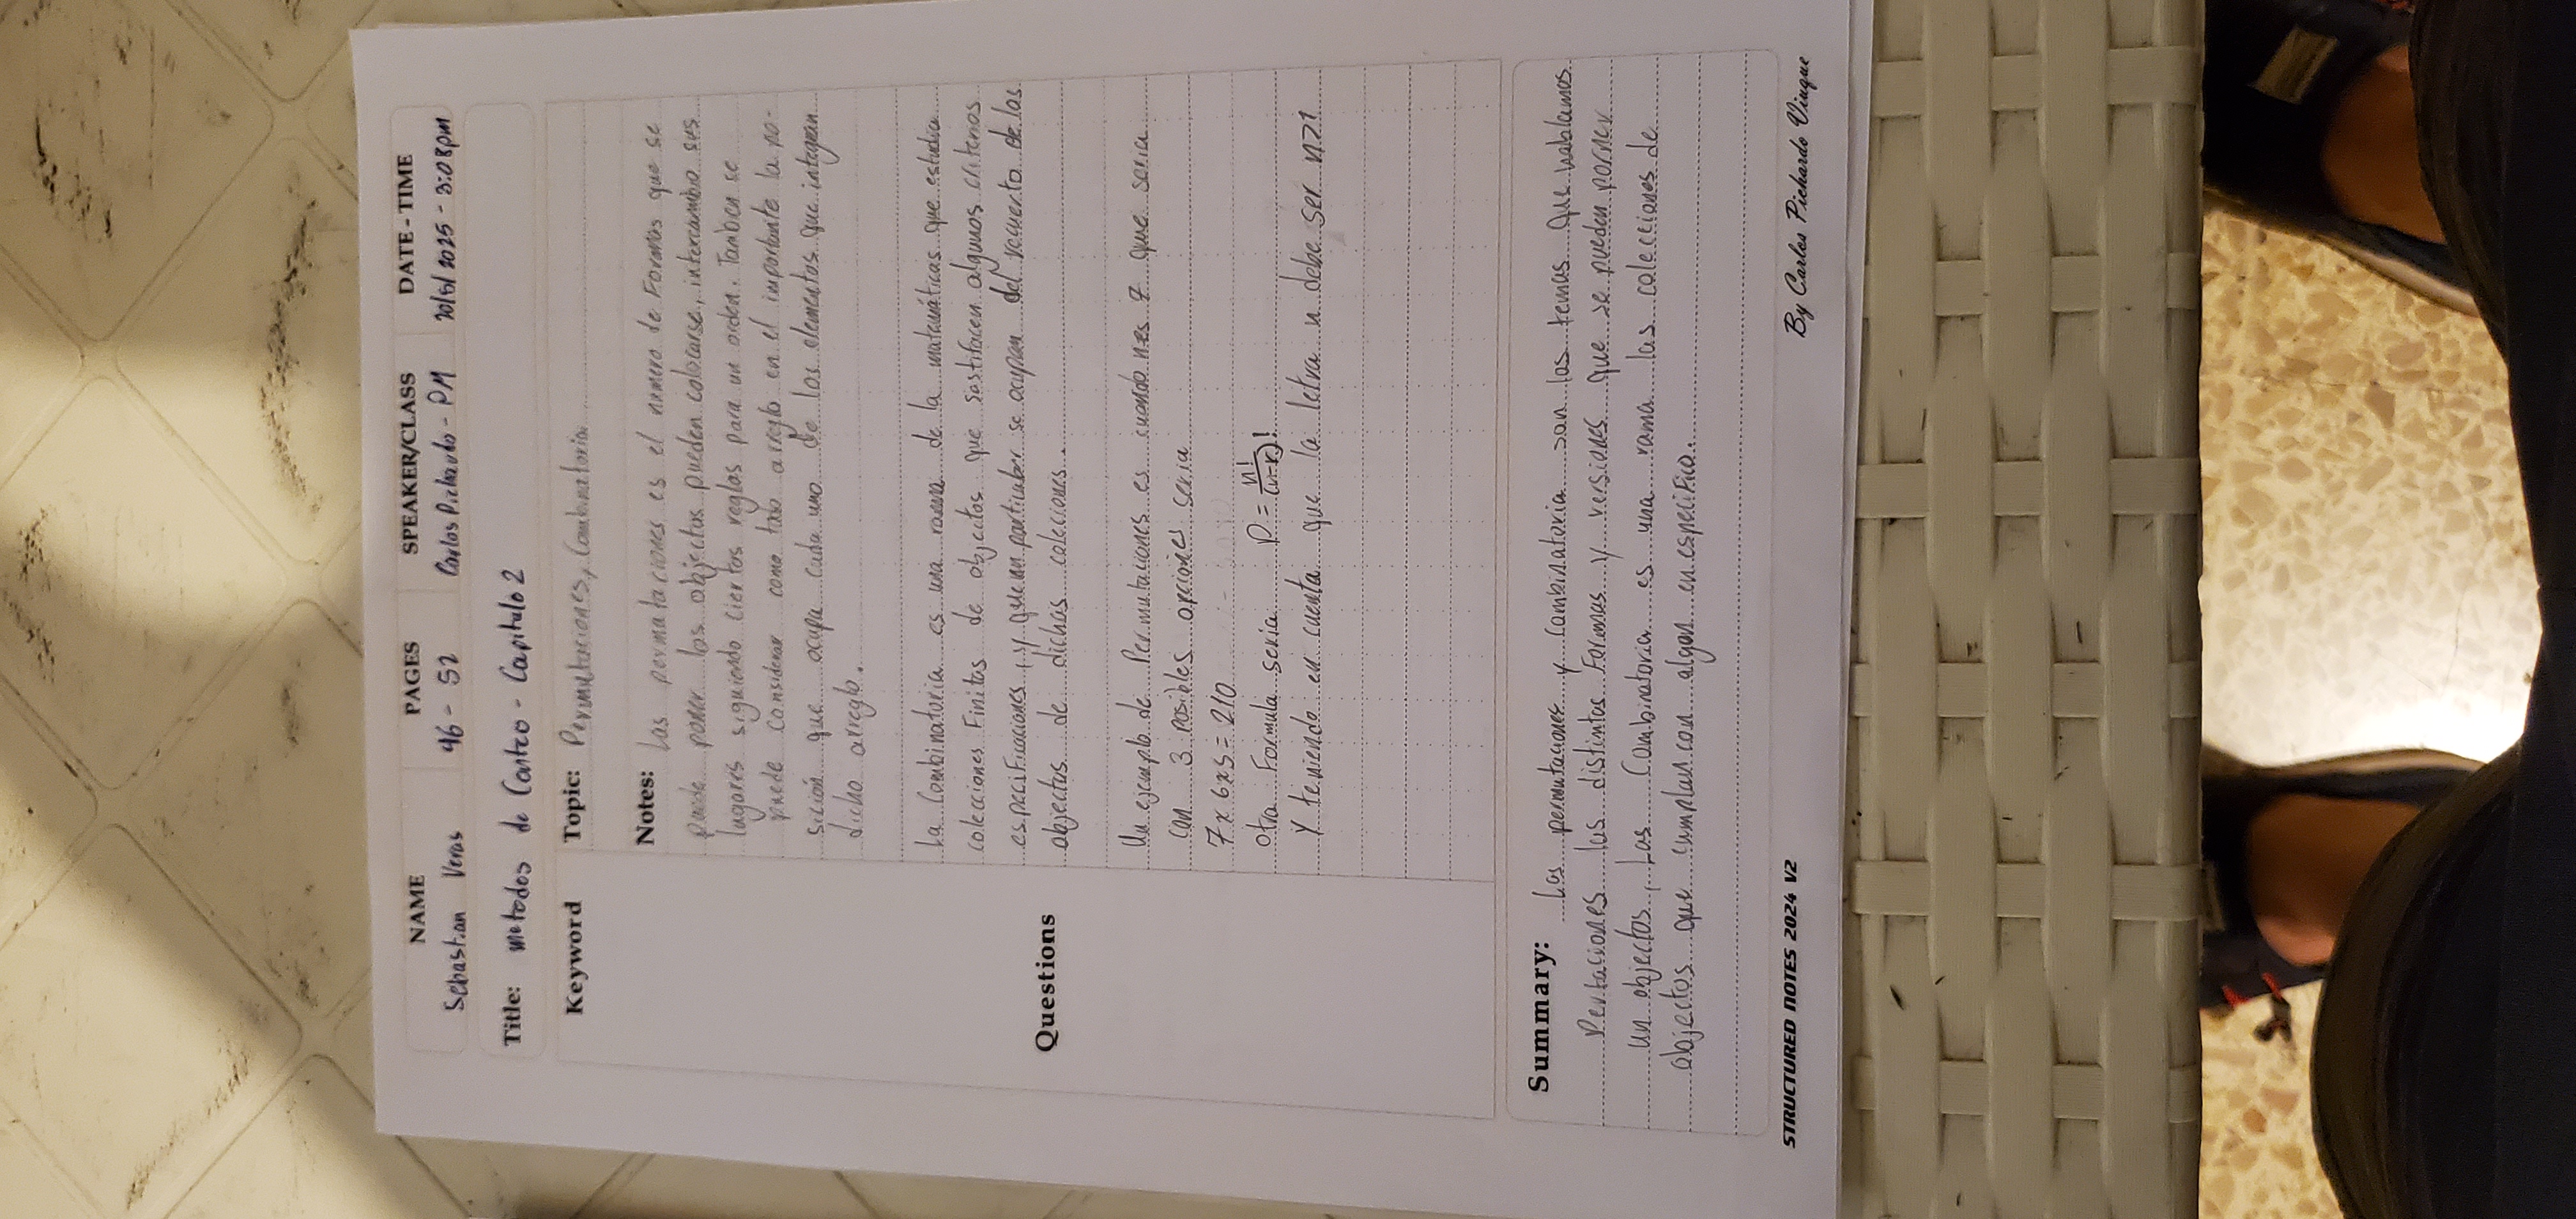 NAME PAGES SPEAKER/CLASS DATE - TIME
Sebastian Veras 46 - 52 Carlos Pichardo - PM 20/5/2025 - 3:08pm
Title: metodos de Conteo - Capitulo 2
Keyword
Topic: Permutaciones, Combinatoria
Notes: Las permutaciones es el numero de Formas que se
puede poner los objectos pueden colocarse, intercambio sus
lugares siguiendo ciertas reglas para un orden. Tambien se
puede considerar como todo arreglo en el importante la po-
sición que ocupa cada uno de los elementos que integran
dicho arreglo.
La Combinatoria es una rama de la matemáticas que estudia
colecciones Finitas de objectos que sastifacen algunos criterios
especificaciones, y que un particular se ocupan del recuerto de los
Questions
objectos de dichas coleciones.
Un ejemplo de Permutaciones es cuando n es 7 que seria
con 3 posibles opciones seria
7x6x5=210
otra Formula seria P = n!/(n-r)!
Y teniendo en cuenta que la letra n debe ser n>1
Summary: Las permutaciones y Combinatoria son los temas que hablamos
Pertaciones las distintas Formas y versiones que se pueden porner
un objectos, Las Combinatoria es una rama las colecciones de
objectos que cumplan con algon en especifico.
STRUCTURED NOTES 2024 V2
By Carlos Pichardo Viuque